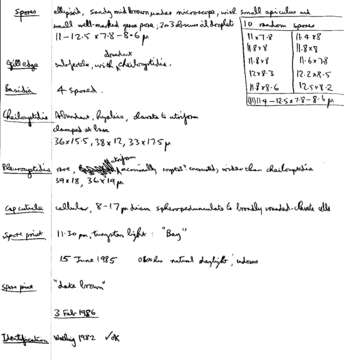 Spores ellipsoid, sandy brown under microscope, with small apiculus and
small well-marked germ pore, 2n3 oil droplets
11 - 12.5 x 7.8 - 8.6 μ
10 random spores
11 x 7.8 11.4 x 8
11.8 x 8 11.8 x 8
11.8 x 8 11.6 x 7.8
12 x 8.3 12.2 x 8.5
11.8 x 8.6 12.5 x 8.2
11.4 - 12.5 x 7.8 - 8.6 μ
Gill edge with cheilocystidia.
Basidia 4 spored.
Cheilocystidia Abundant, hyaline, clavate to utriform
clamped at base
36 x 15.5, 38 x 12, 33 x 17.5 μ
Pleurocystidia rare, utriform, wider than cheilocystidia
39 x 18, 36 x 19 μ
Cap cuticle cellular, 8-17 μ diam sphaeropedunculate to broadly rounded-clavate cells
Spore print 11.30 pm, tungsten light: "Bay"
15 June 1985 natural daylight, indoors
Spore print "date brown"
3 Feb 1986
Identification Watling 1982 ✓OK